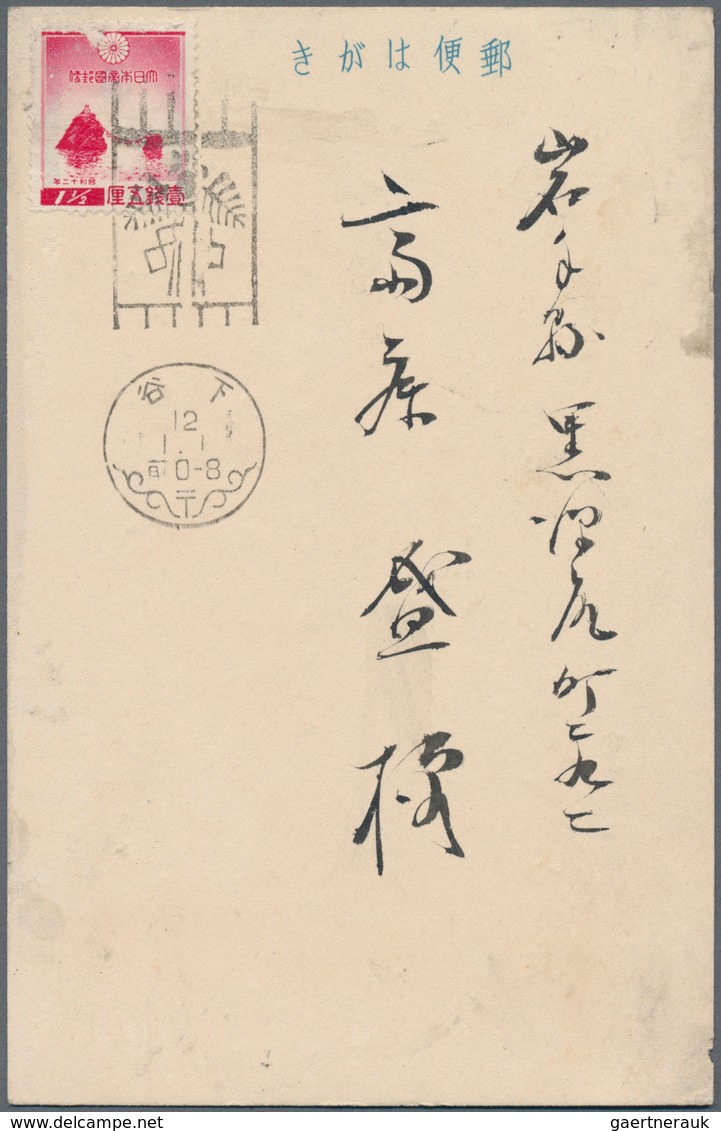 郵便はがき
大日本帝國郵便
昭和十二年
1½
壹錢五厘
下谷
12
1.1
前0-8
〒
岩手縣黒沢尻町
盛様
gaertnerauk